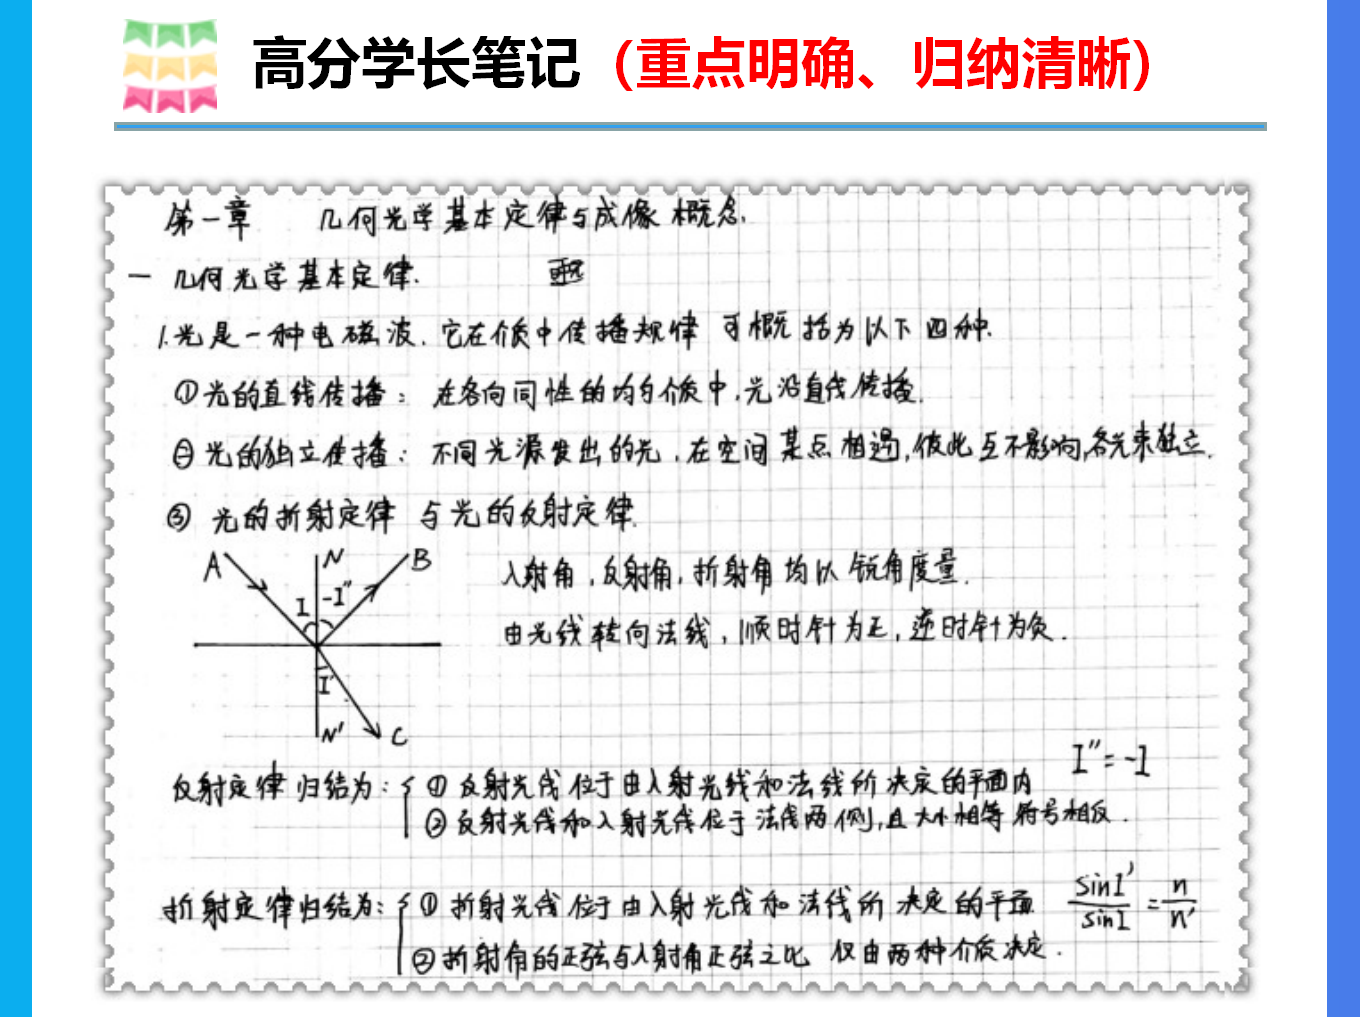 高分学长笔记（重点明确、归纳清晰）
第一章 几何光学基本定律与成像概念.
一 几何光学基本定律.
1.光是一种电磁波.它在介质中传播规律 可概括为以下四种.
①光的直线传播：在各向同性的均匀介质中,光沿直线传播.
②光的独立传播：不同光源发出的光,在空间某点相遇,彼此互不影响,各光束独立.
③ 光的折射定律 与光的反射定律.
A N B
I -I''
I'
N' C
入射角,反射角,折射角均以锐角度量.
由光线转向法线,顺时针为正,逆时针为负.
I''=-I
反射定律归结为：①反射光线位于由入射光线和法线所决定的平面内
②反射光线和入射光线位于法线两侧,且大小相等符号相反.
折射定律归结为：①折射光线位于由入射光线和法线所决定的平面 sinI'/sinI=n/n'
②折射角的正弦与入射角正弦之比 仅由两种介质决定.